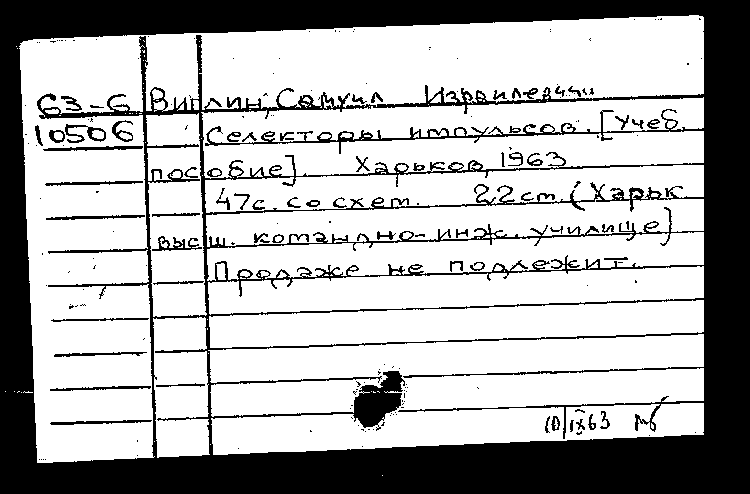 63-6 Виглин, Самуил Израилевич
10506 Селекторы импульсов. [Учеб.
пособие]. Харьков, 1963
47с. со схем. 22см. (Харьк
высш. командно-инж. училище)
Продаже не подлежит.
10/IX 63